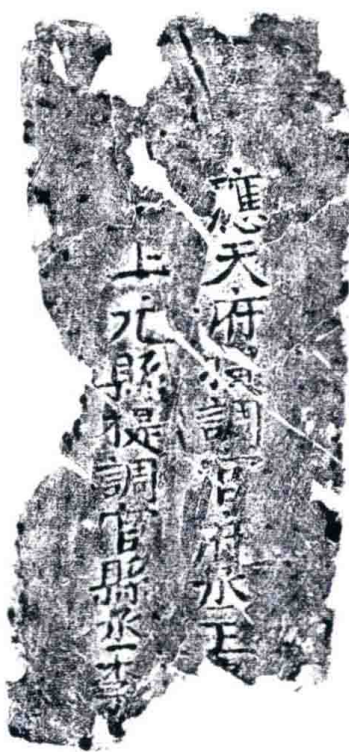 應天府提調官府丞王
上元縣提調官縣丞李